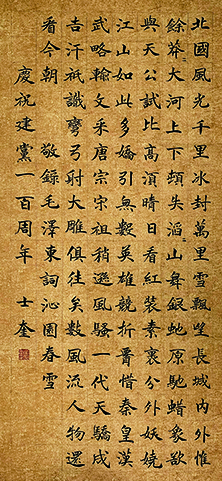 北國風光千里冰封萬里雪飄望長城內外惟
餘莽々大河上下頓失滔々山舞銀蛇原馳蜡象欲
與天公試比高須晴日看紅裝素裹分外妖嬈
江山如此多嬌引無數英雄競折腰惜秦皇漢
武略輸文采唐宗宋祖稍遜風騷一代天驕成
吉汗祇識彎弓射大雕俱往矣數風流人物還
看今朝 敬錄毛澤東詞沁園春雪
慶祝建黨一百周年 士奎